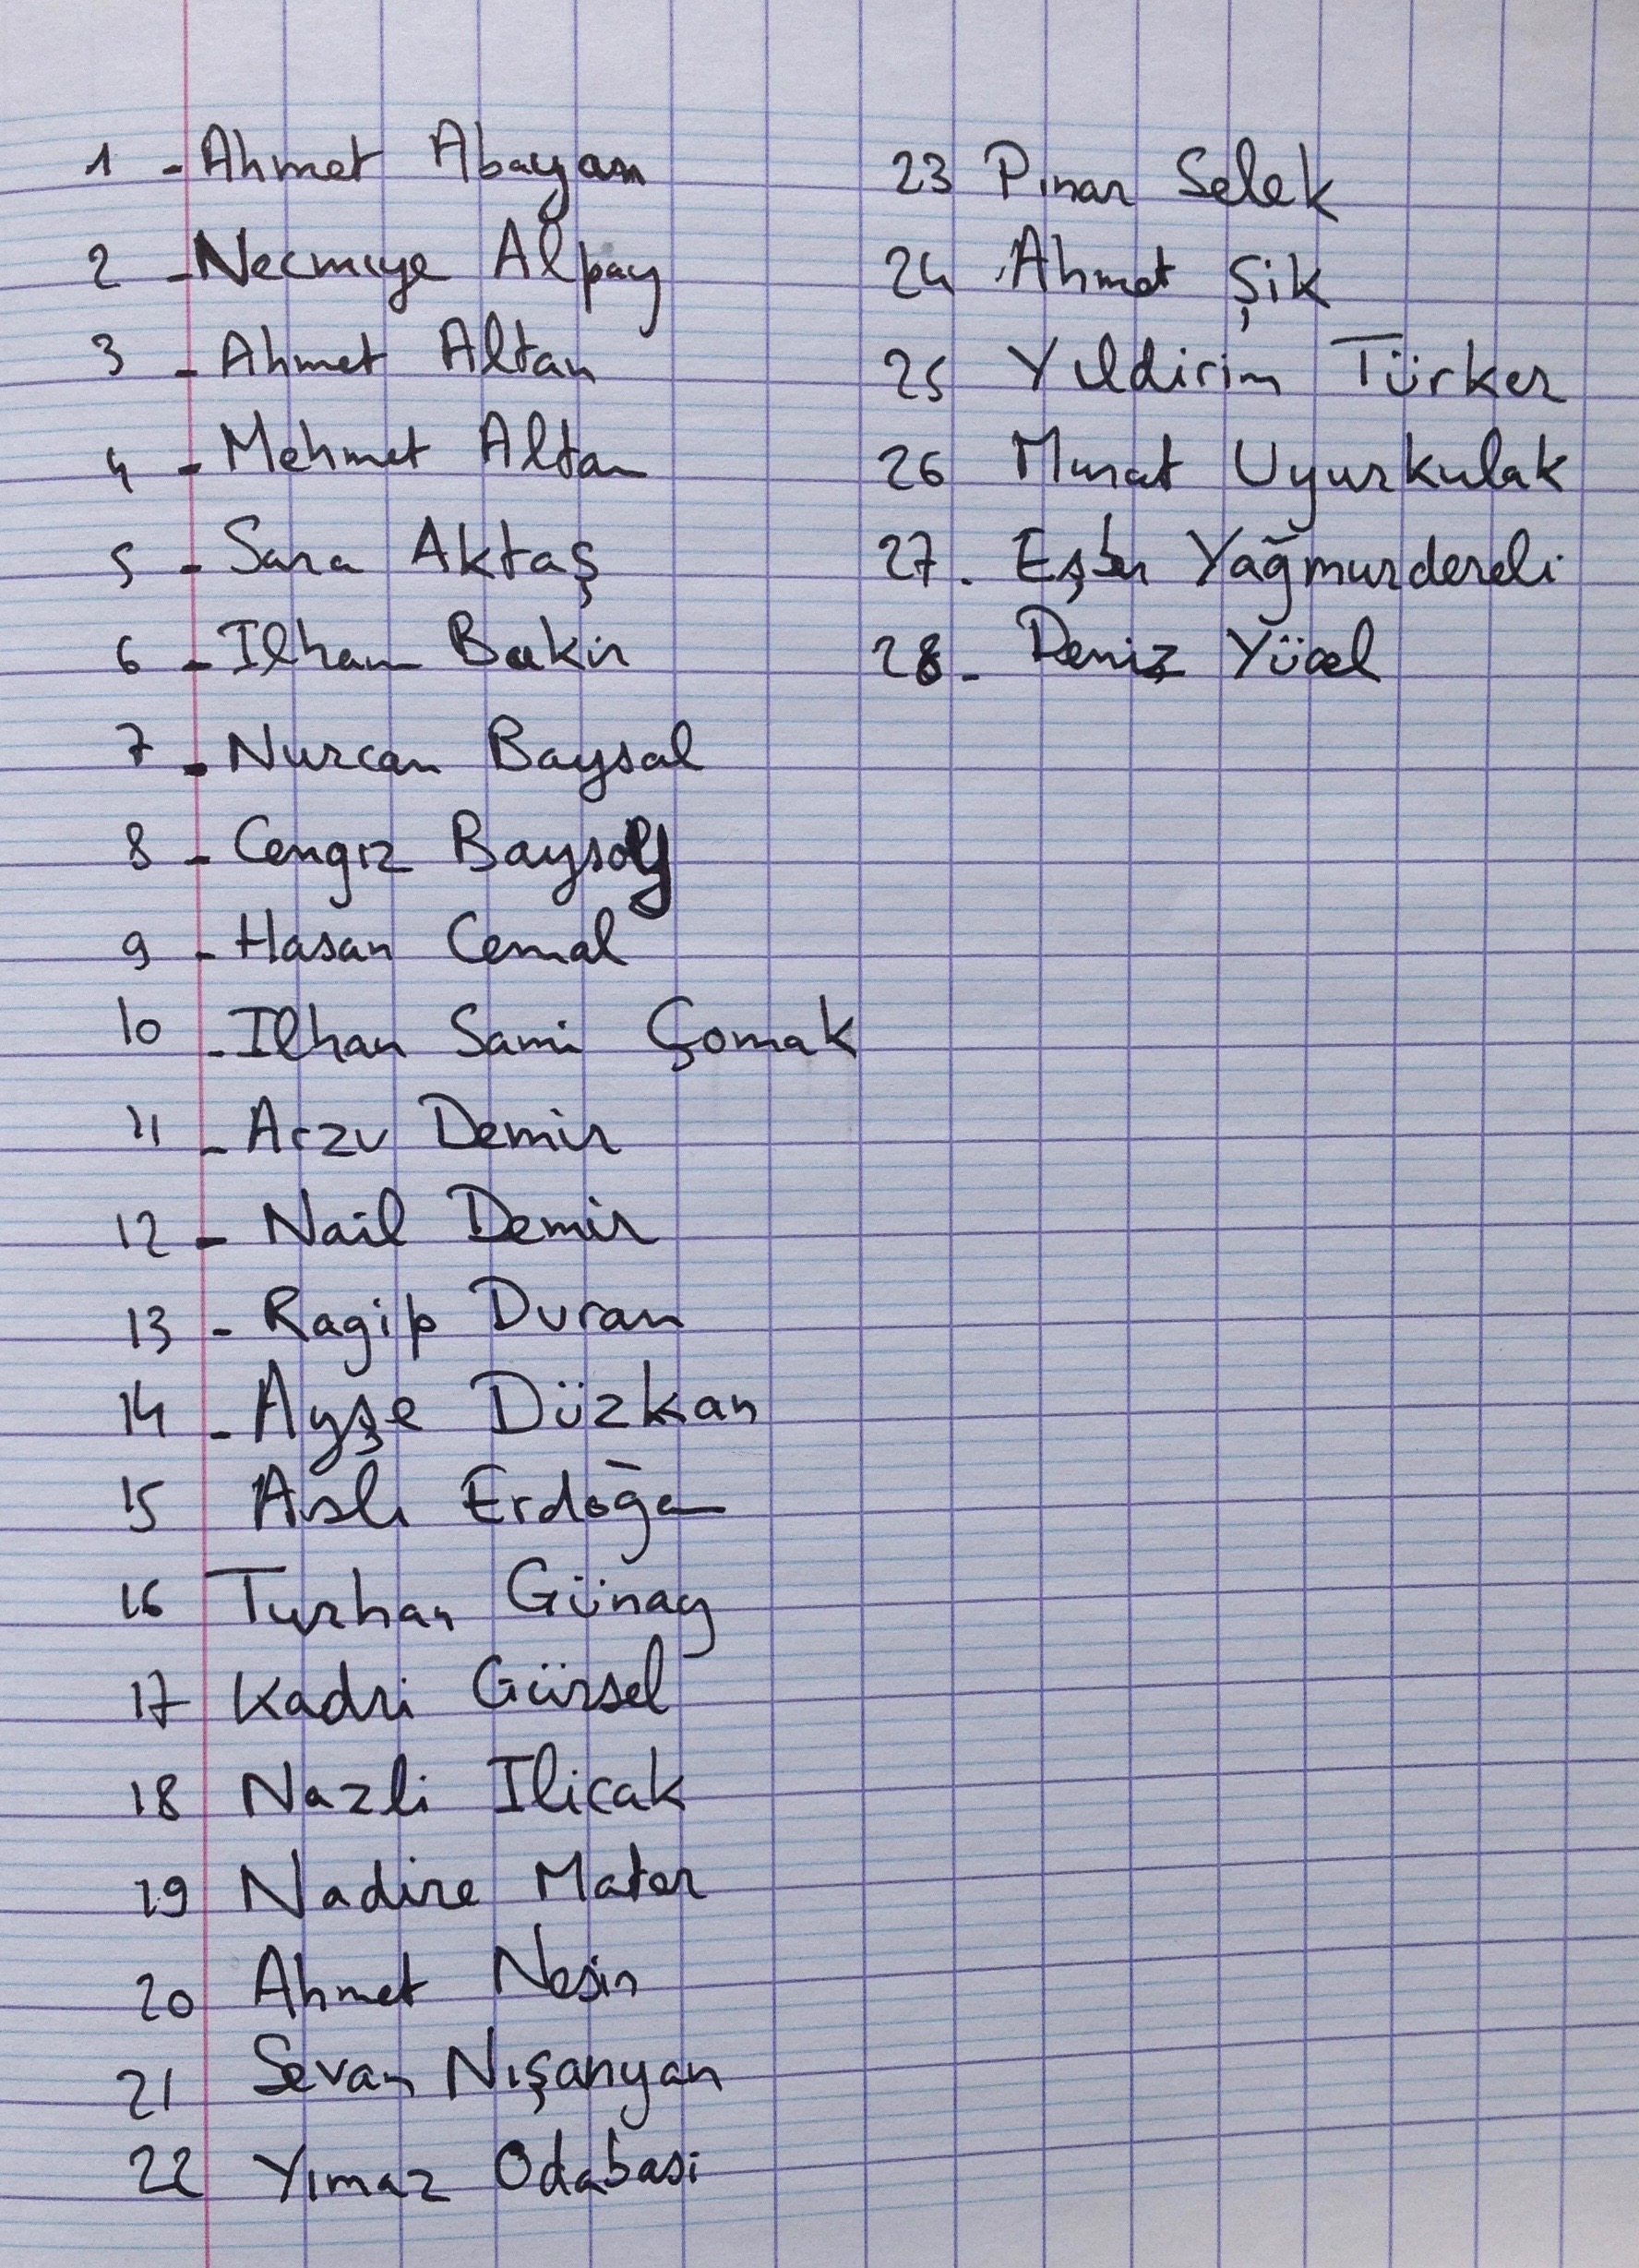 1 - Ahmet Abayam
2 - Necmiye Alpay
3 - Ahmet Altan
4 - Mehmet Altan
5 - Sara Aktaş
6 - Ilhan Bakir
7 - Nurcan Baysal
8 - Cengiz Baysoy
9 - Hasan Cemal
10 - Ilhan Sami Çomak
11 - Arzu Demir
12 - Nail Demir
13 - Ragip Duran
14 - Ayşe Düzkan
15 Aslı Erdoğan
16 Turhan Günay
17 Kadri Gürsel
18 Nazli Ilicak
19 Nadire Mater
20 Ahmet Nesin
21 Sevan Nışanyan
22 Yımaz Odabasi
23 Pınar Selek
24 Ahmet Şik
25 Yıldirim Türker
26 Murat Uyurkulak
27. Eşber Yağmurdereli
28 - Deniz Yücel